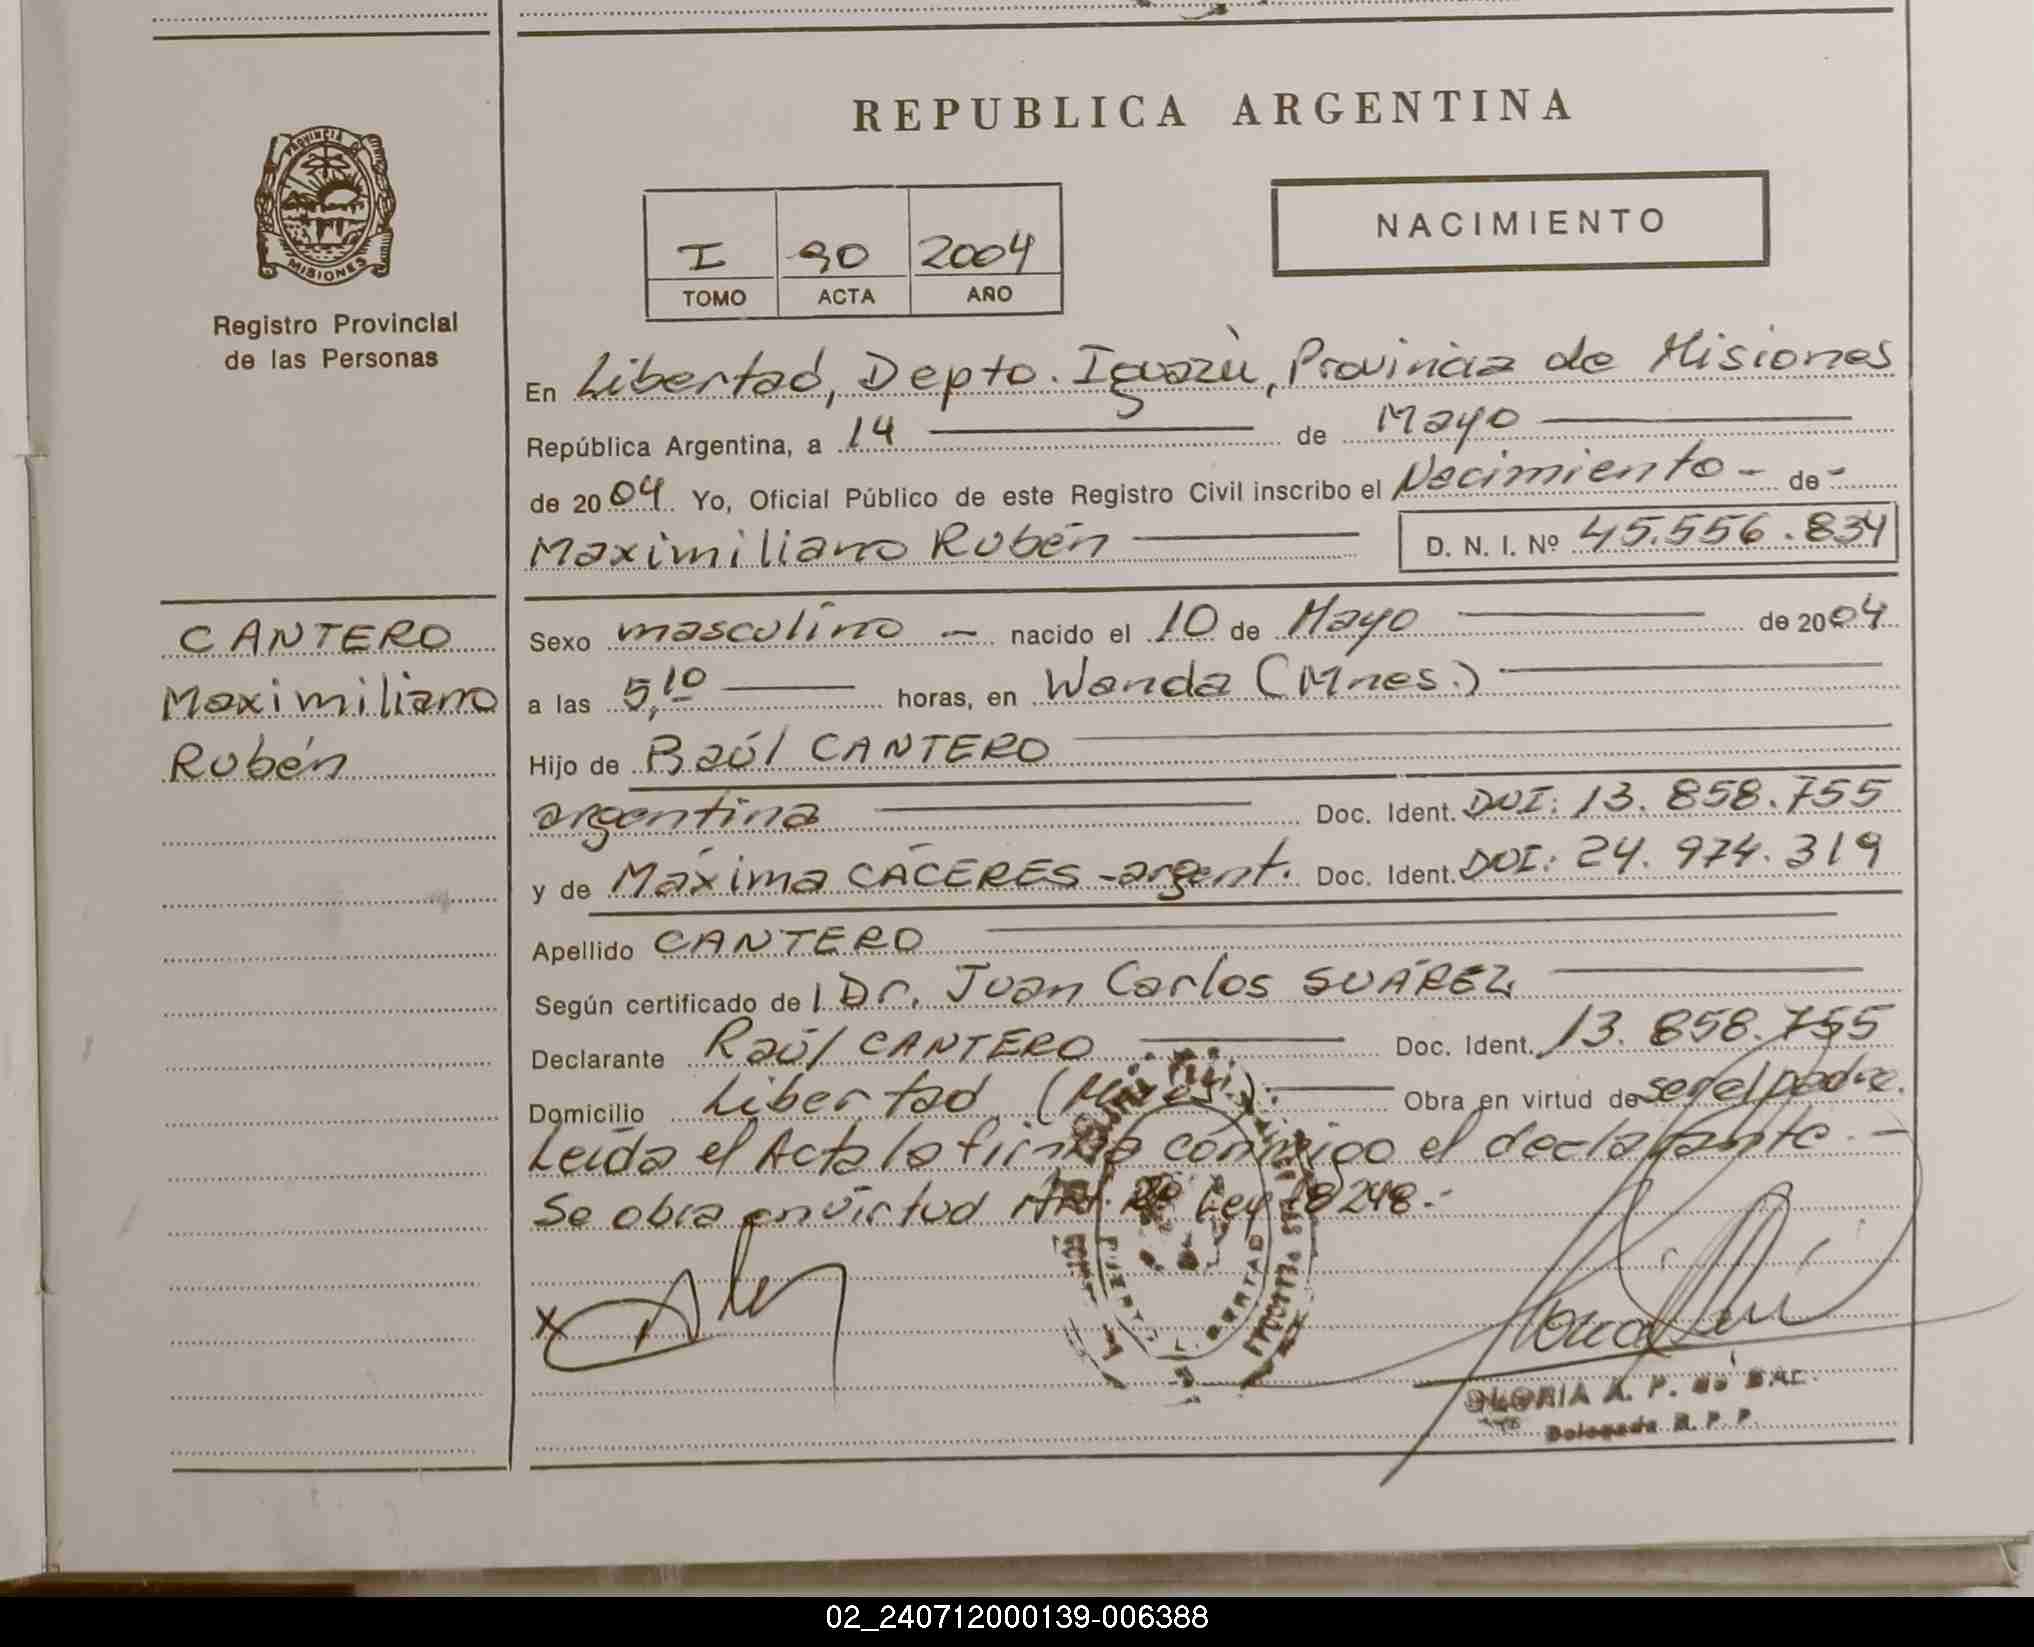 REPUBLICA ARGENTINA
PROVINCIA DE
MISIONES
Registro Provincial
de las Personas
NACIMIENTO
I 90 2004
TOMO ACTA AÑO
En Libertad, Depto. Iguazù, Provincia de Misiones
República Argentina, a 14 de Mayo
de 2004 Yo, Oficial Público de este Registro Civil inscribo el Nacimiento - de -
Maximiliano Rubén D. N. I. Nº 45.556.834
CANTERO
Maximiliano
Rubén
Sexo masculino - nacido el 10 de Mayo de 2004
a las 5,10 horas, en Wanda (Mnes.)
Hijo de Raúl CANTERO
argentina Doc. Ident. DNI: 13.858.755
y de Máxima CÁCERES - argent. Doc. Ident. DNI: 24.974.319
Apellido CANTERO
Según certificado de l Dr. Juan Carlos SUÁREZ
Declarante Raúl CANTERO Doc. Ident. 13.858.755
Domicilio Libertad (Mnes.) Obra en virtud de ser el padre.
Leída el Acta la firma conmigo el declarante. -
Se obra en virtud Art. 2º Ley 18248.-
x
GLORIA A. P. de
Delegada R. P. P.
02_240712000139-006388